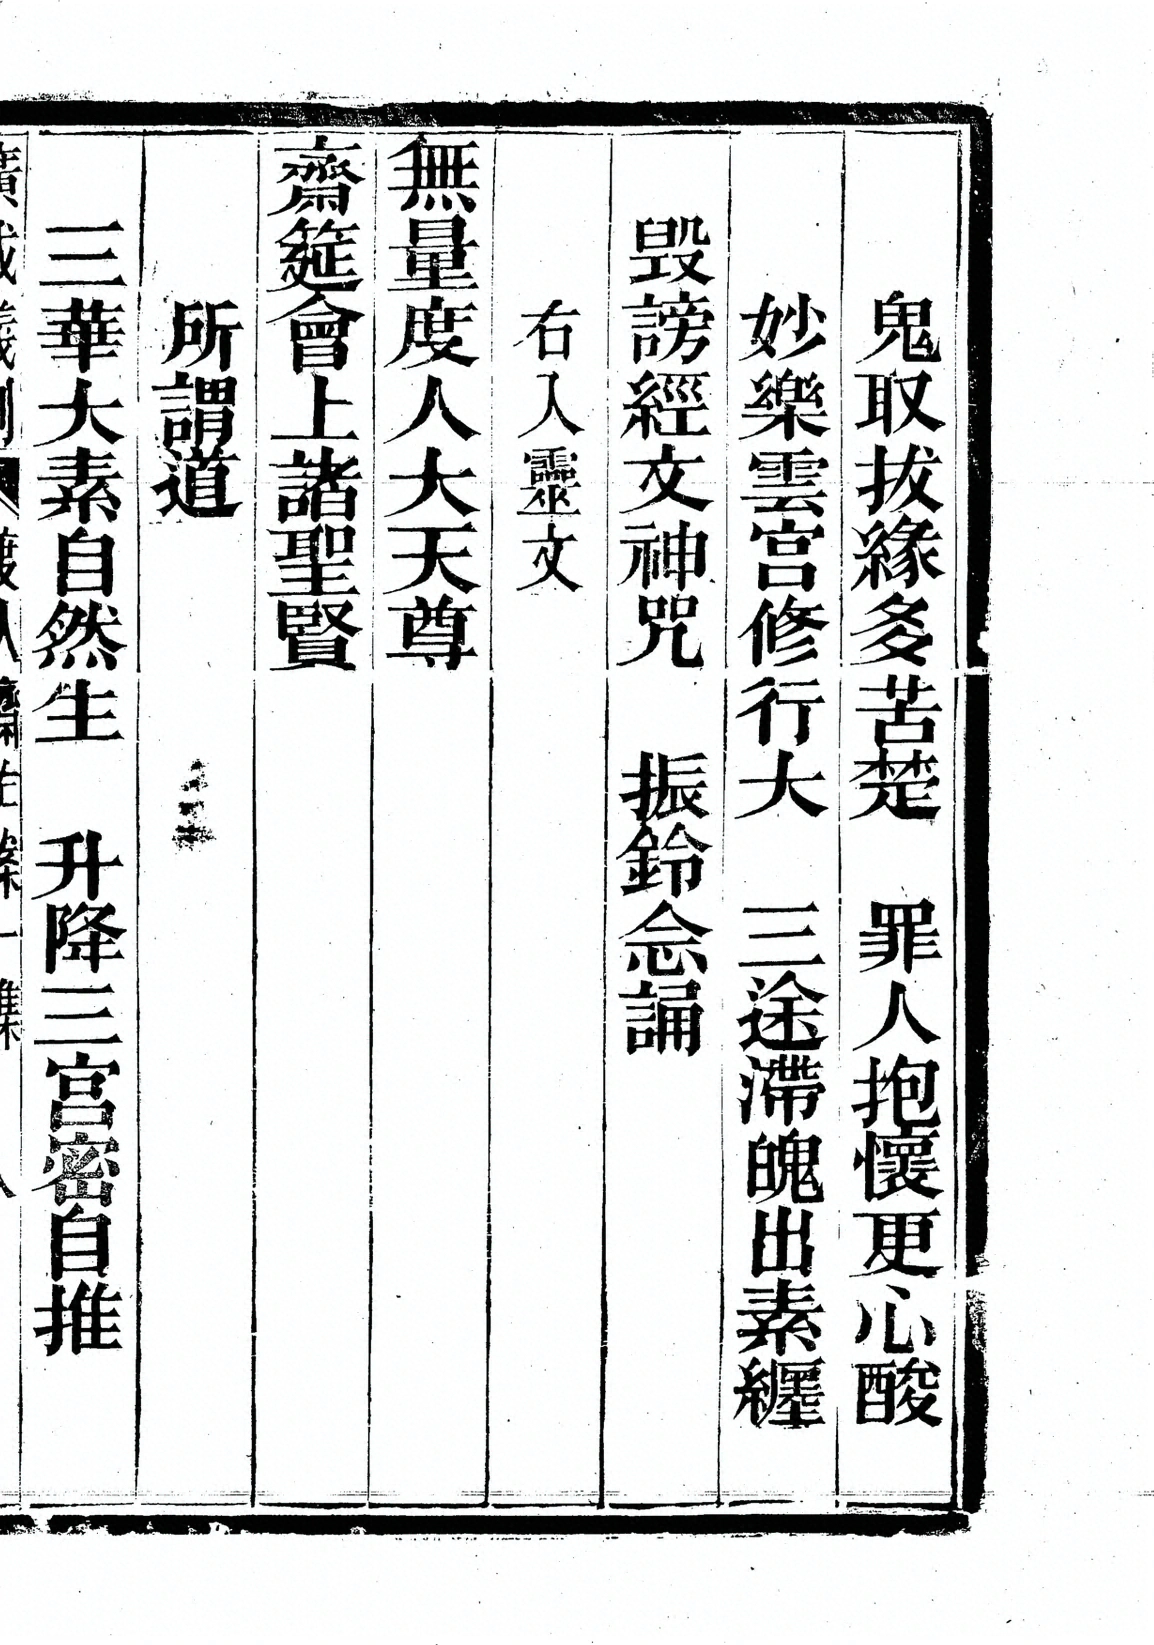 鬼取拔緣多苦楚　罪人抱懷更心酸
妙樂雲宮修行大　三途滯魄出素纏
毀謗經文神咒　振鈴念誦
右入靈文
無量度人大天尊
齋筵會上諸聖賢
所謂道
三華大素自然生　升降三宮密自推